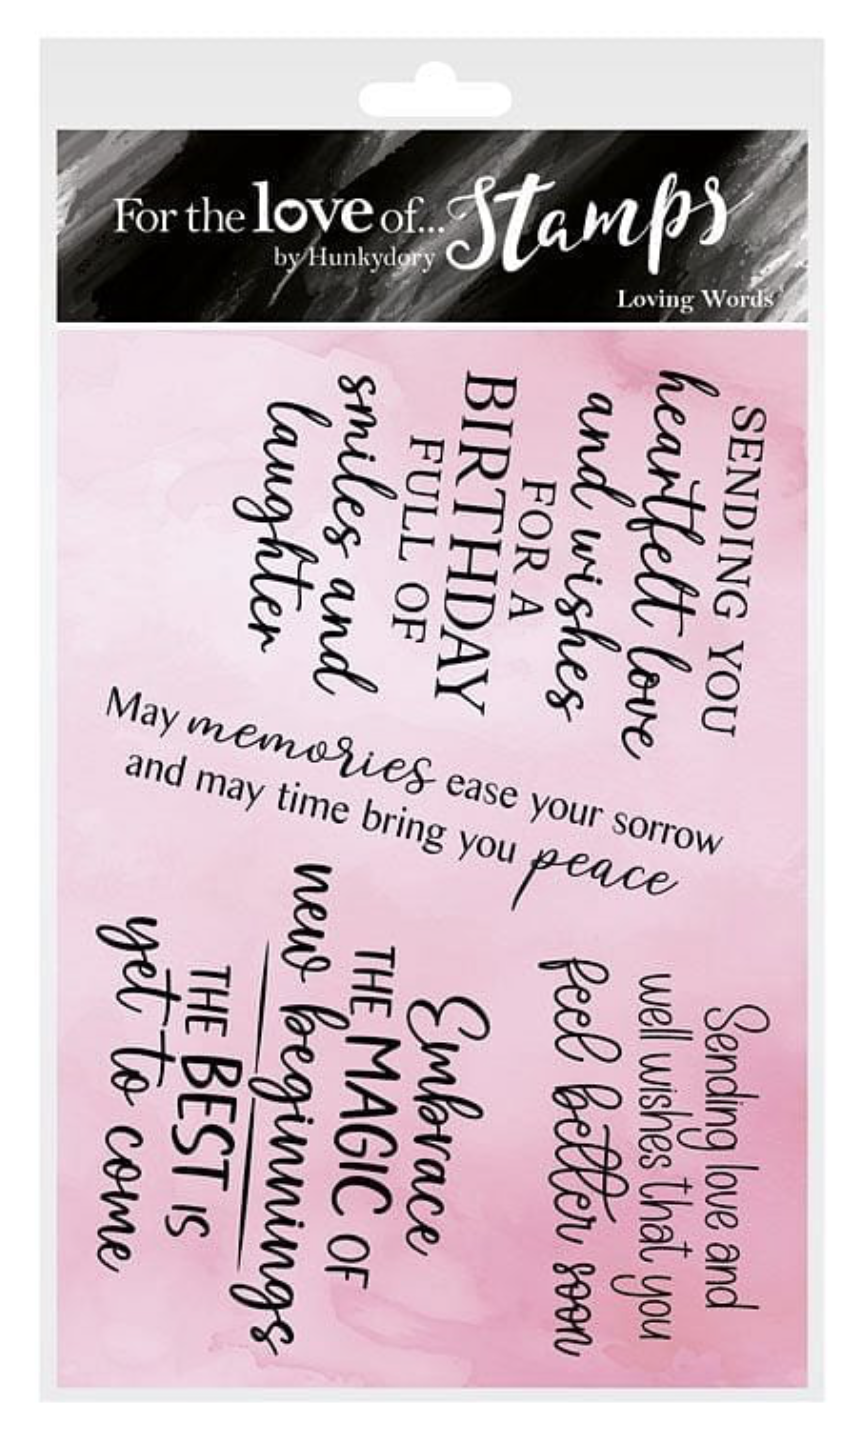 For the love of... Stamps
by Hunkydory
Loving Words
SENDING YOU
heartfelt love
and wishes
FOR A
BIRTHDAY
FULL OF
smiles and
laughter
May memories ease your sorrow
and may time bring you peace
Sending love and
well wishes that you
feel better soon
Embrace
THE MAGIC OF
new beginnings
THE BEST IS
yet to come